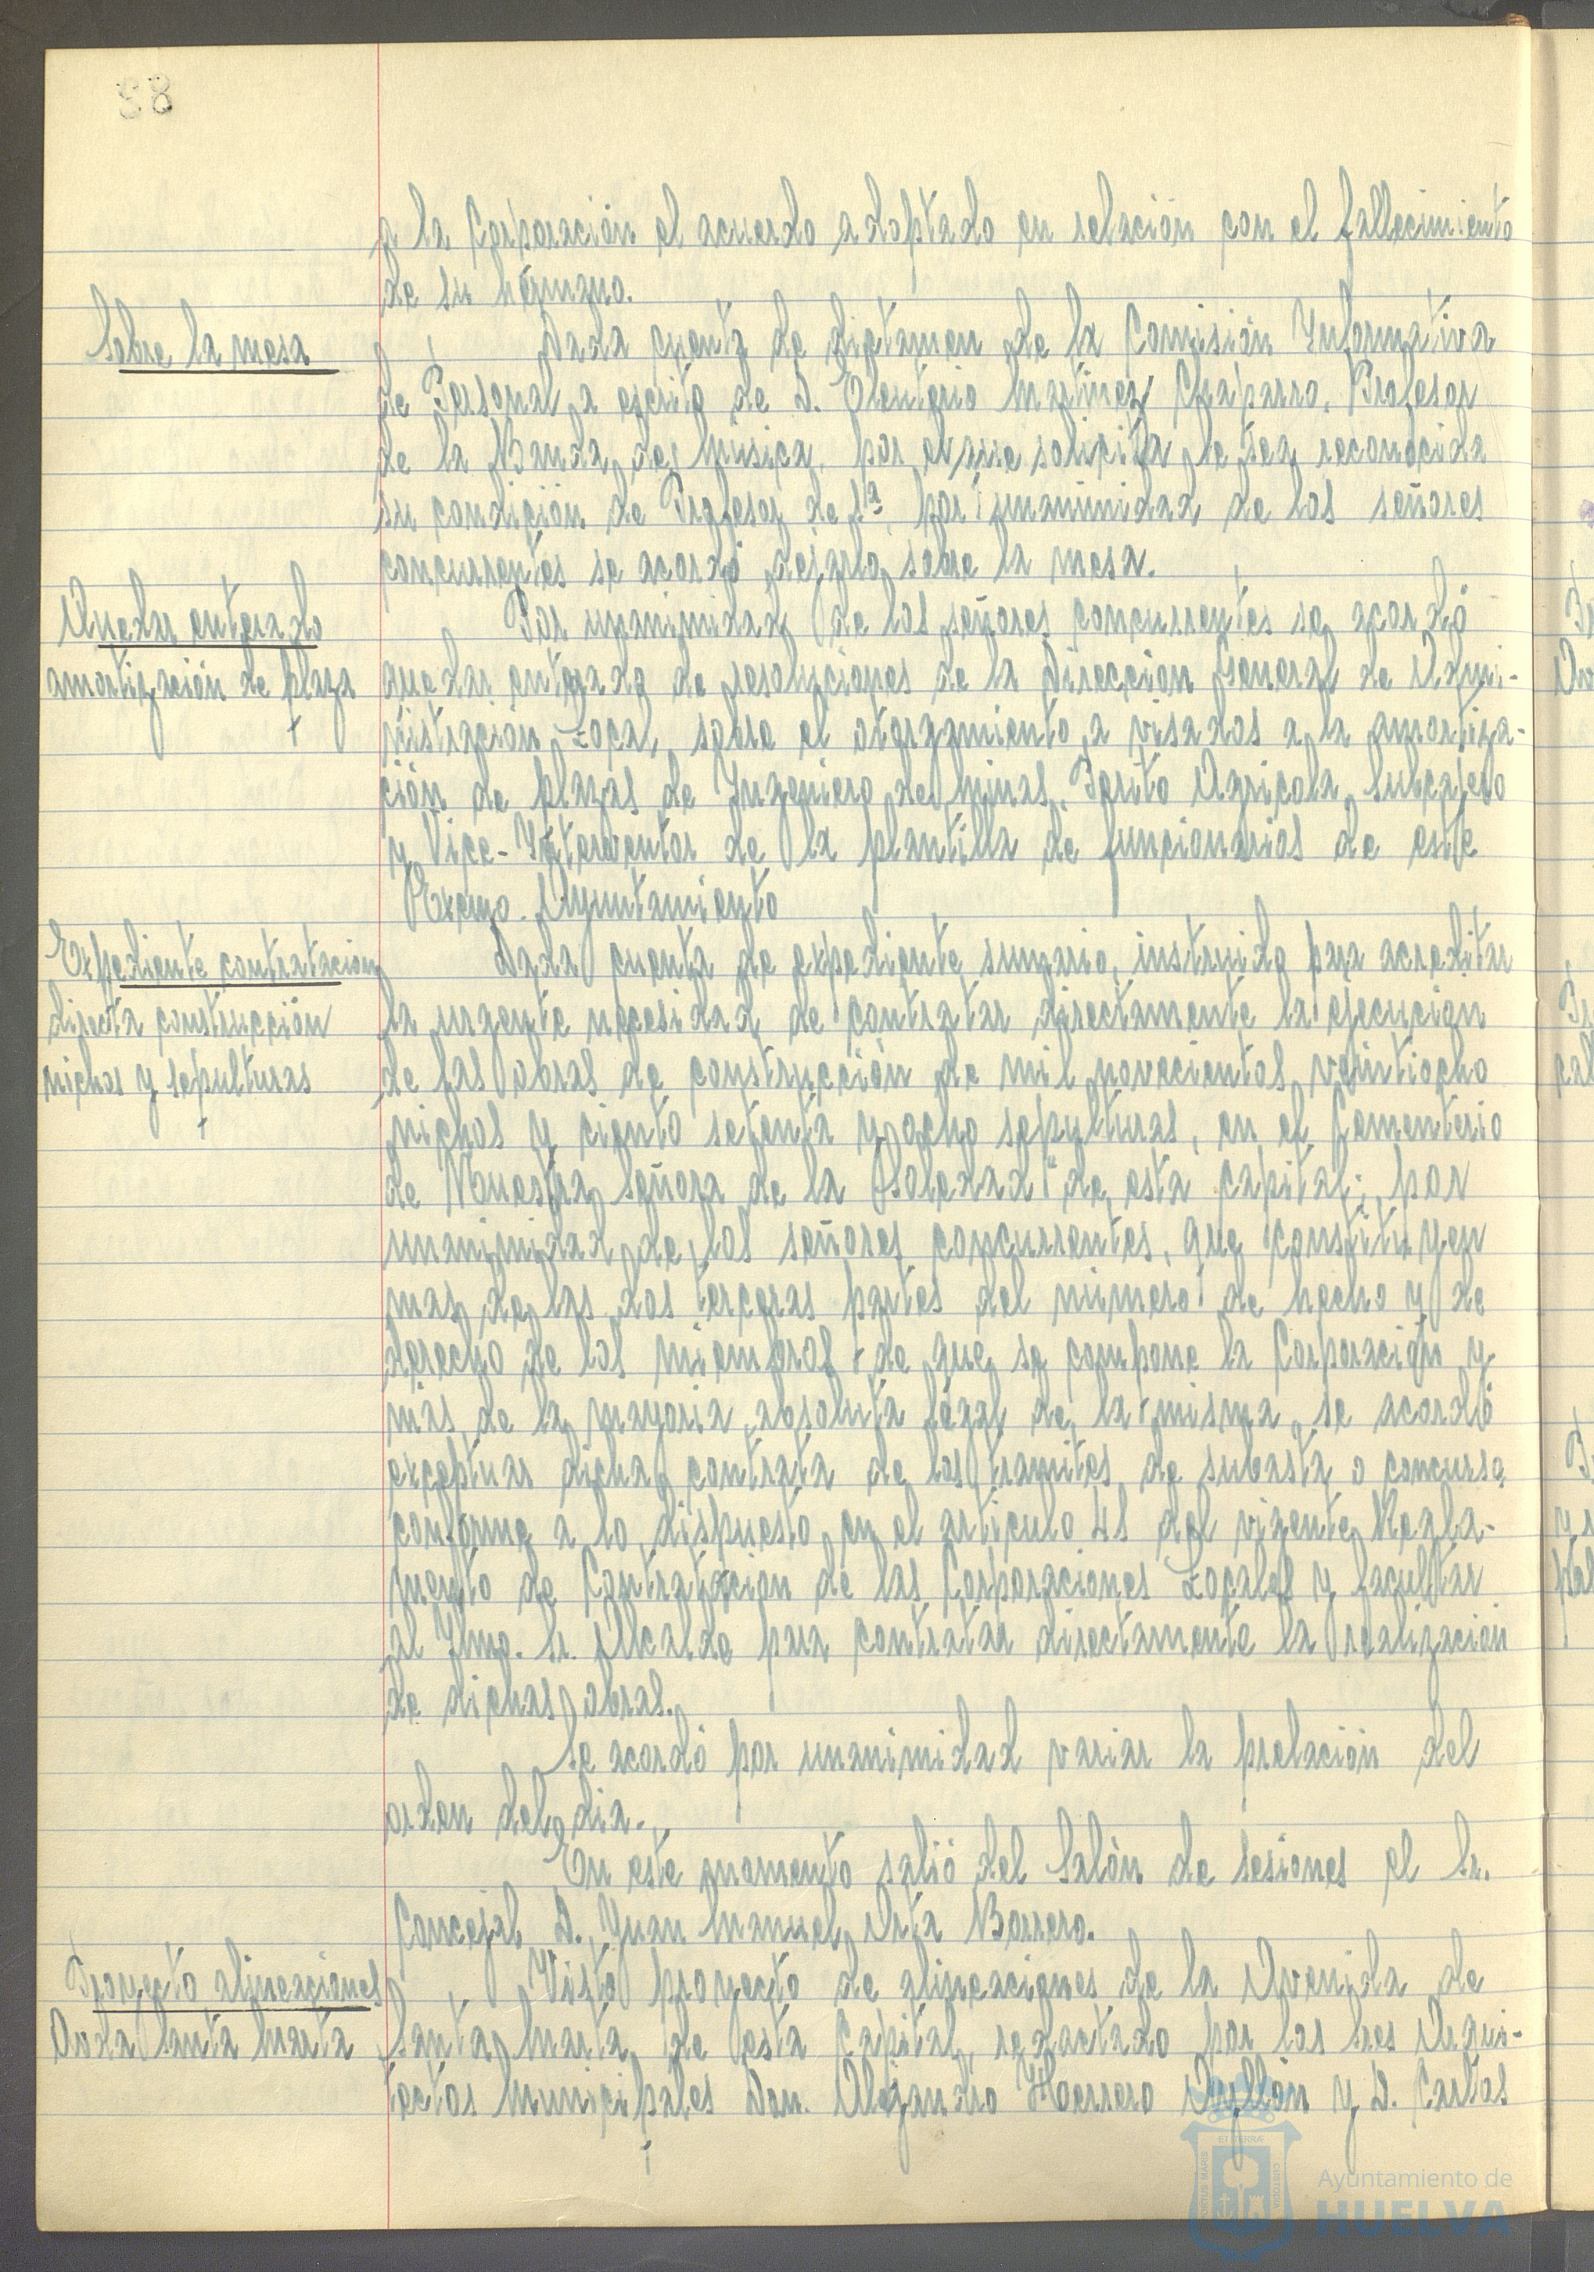 88
a la Corporación el acuerdo adoptado en relación con el fallecimiento
de su hermano.
Sobre la mesa
Dada cuenta de dictamen de la Comisión Informativa
de Personal a escrito de D. Eleuterio Martínez Chaparro, Profesor
de la Banda de Música, por el que solicita le sea reconocida
su condición de Profesor de 1ª por unanimidad de los señores
concurrentes se acordó dejarlo sobre la mesa.
Quedar enterado
amortización de plaza
Por unanimidad de los señores concurrentes se acordó
quedar enterado de resoluciones de la Dirección General de Admi-
nistración Local, sobre el otorgamiento a visados a la amortiza-
ción de plazas de Ingeniero de Minas, Perito Agrícola, Subcajero
y Vice-Interventor de la plantilla de funcionarios de este
Excmo. Ayuntamiento
Expediente contratacion
directa construcción
nichos y sepulturas
Dada cuenta de expediente sumario, instruido para acreditar
la urgente necesidad de contratar directamente la ejecución
de las obras de construcción de mil novecientos veintiocho
nichos y ciento setenta y ocho sepulturas, en el Cementerio
de Nuestra Señora de la Soledad" de esta capital; por
unanimidad de los señores concurrentes, que constituyen
mas de las dos terceras partes del número de hecho y de
derecho de los miembros de que se compone la Corporación y
más de la mayoria absoluta legal de la misma, se acordó
exceptuar dicha contrata de los tramites de subasta o concurso
conforme a lo dispuesto en el artículo 41 del vigente Regla-
mento de Contratacion de las Corporaciones Locales y facultar
al Ilmo. Sr. Alcalde para contratar directamente la realización
de dichas obras.
Se acordó por unanimidad variar la prelación del
orden del dia.
En este momento salió del Salón de sesiones el Sr.
Concejal D. Juan Manuel Orta Borrero.
Proyecto alineaciones
Avda Santa Marta
Visto proyecto de alineaciones de la Avenida de
Santa Marta de esta Capital, redactado por los sres Arqui-
tectos Municipales Don. Alejandro Herrero Ayllón y D. Carlos
Ayuntamiento de
HUELVA